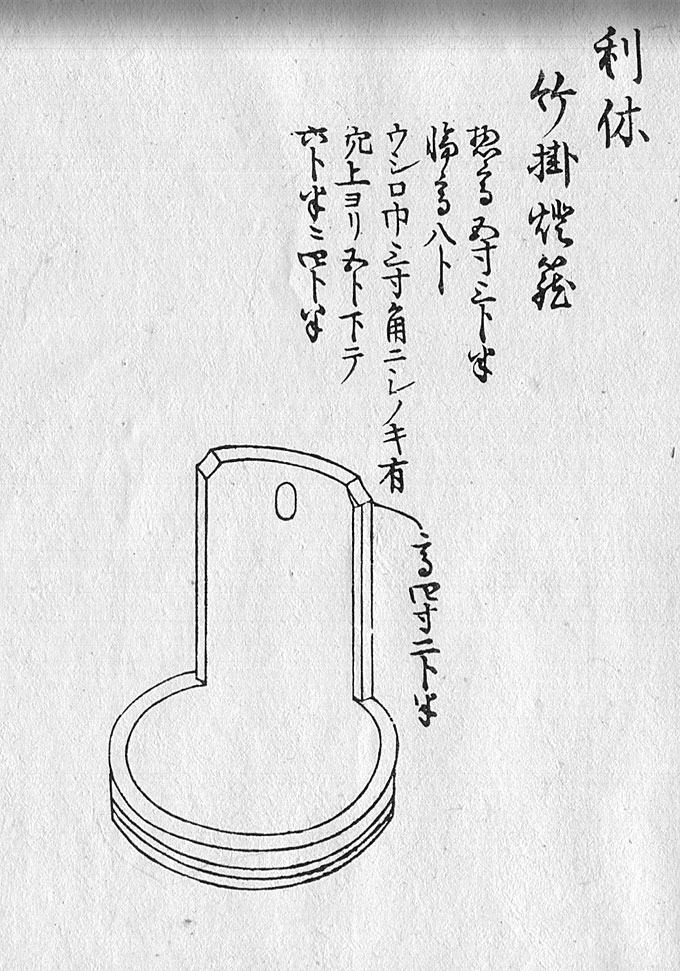 利休
竹掛燈籠
惣高五寸三卜半
輪高八卜
ウシロ巾三寸角ニシノキ有
穴上ヨリ五卜下テ
六卜半ニ四卜半
高四寸二卜半